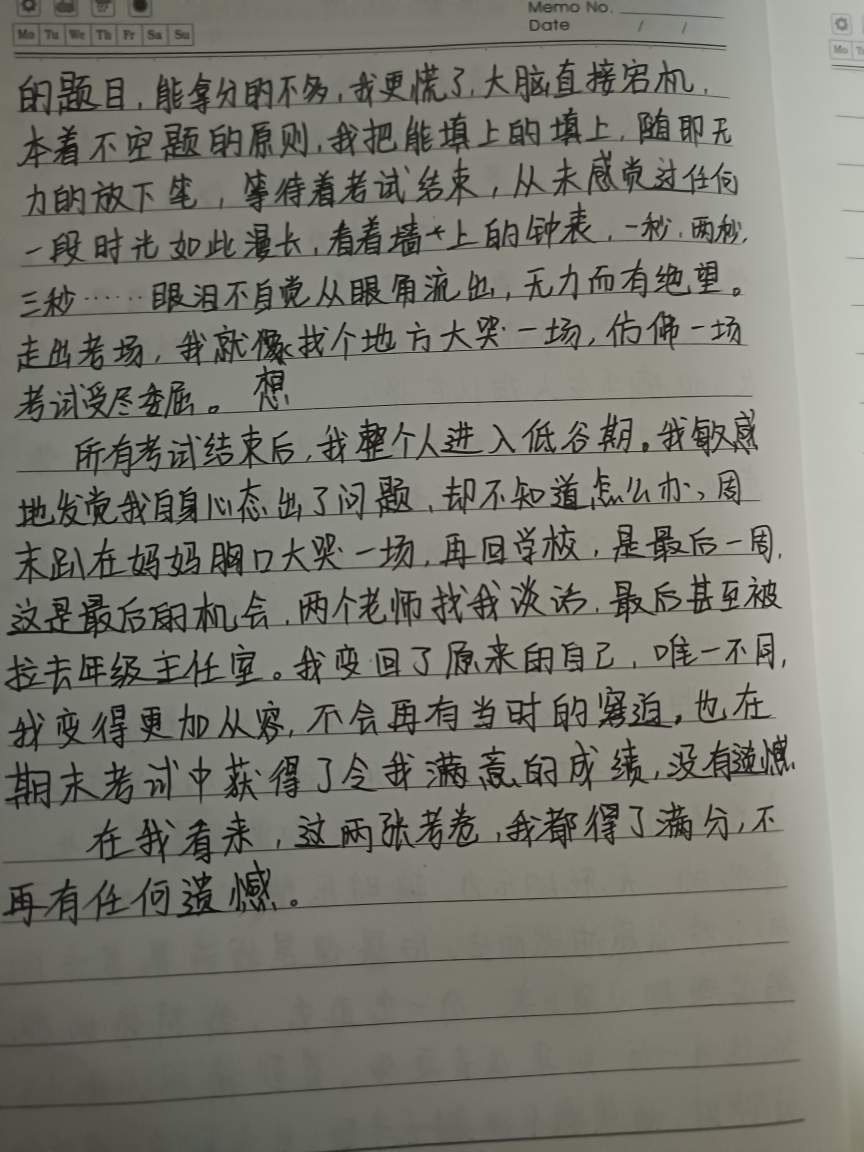 Memo No.
Mo Tu We Th Fr Sa Su
Date / /
的题目，能拿分的不多，我更慌了，大脑直接宕机，
本着不空题的原则，我把能填上的填上，随即无
力的放下笔，等待着考试结束，从未感觉过任何
一段时光如此漫长，看着墙上的钟表，一秒，两秒，
三秒……眼泪不自觉从眼角流出，无力而有绝望。
走出考场，我就像找个地方大哭一场，仿佛一场
考试受尽委屈。 想
所有考试结束后，我整个人进入低谷期。我敏感
地发觉我自身心态出了问题，却不知道怎么办、周
末趴在妈妈胸口大哭一场，再回学校，是最后一周，
这是最后的机会，两个老师找我谈话，最后甚至被
拉去年级主任室。我变回了原来的自己，唯一不同，
我变得更加从容，不会再有当时的窘迫，也在
期末考试中获得了令我满意的成绩，没有遗憾
在我看来，这两张考卷，我都得了满分，不
再有任何遗憾。
Mo